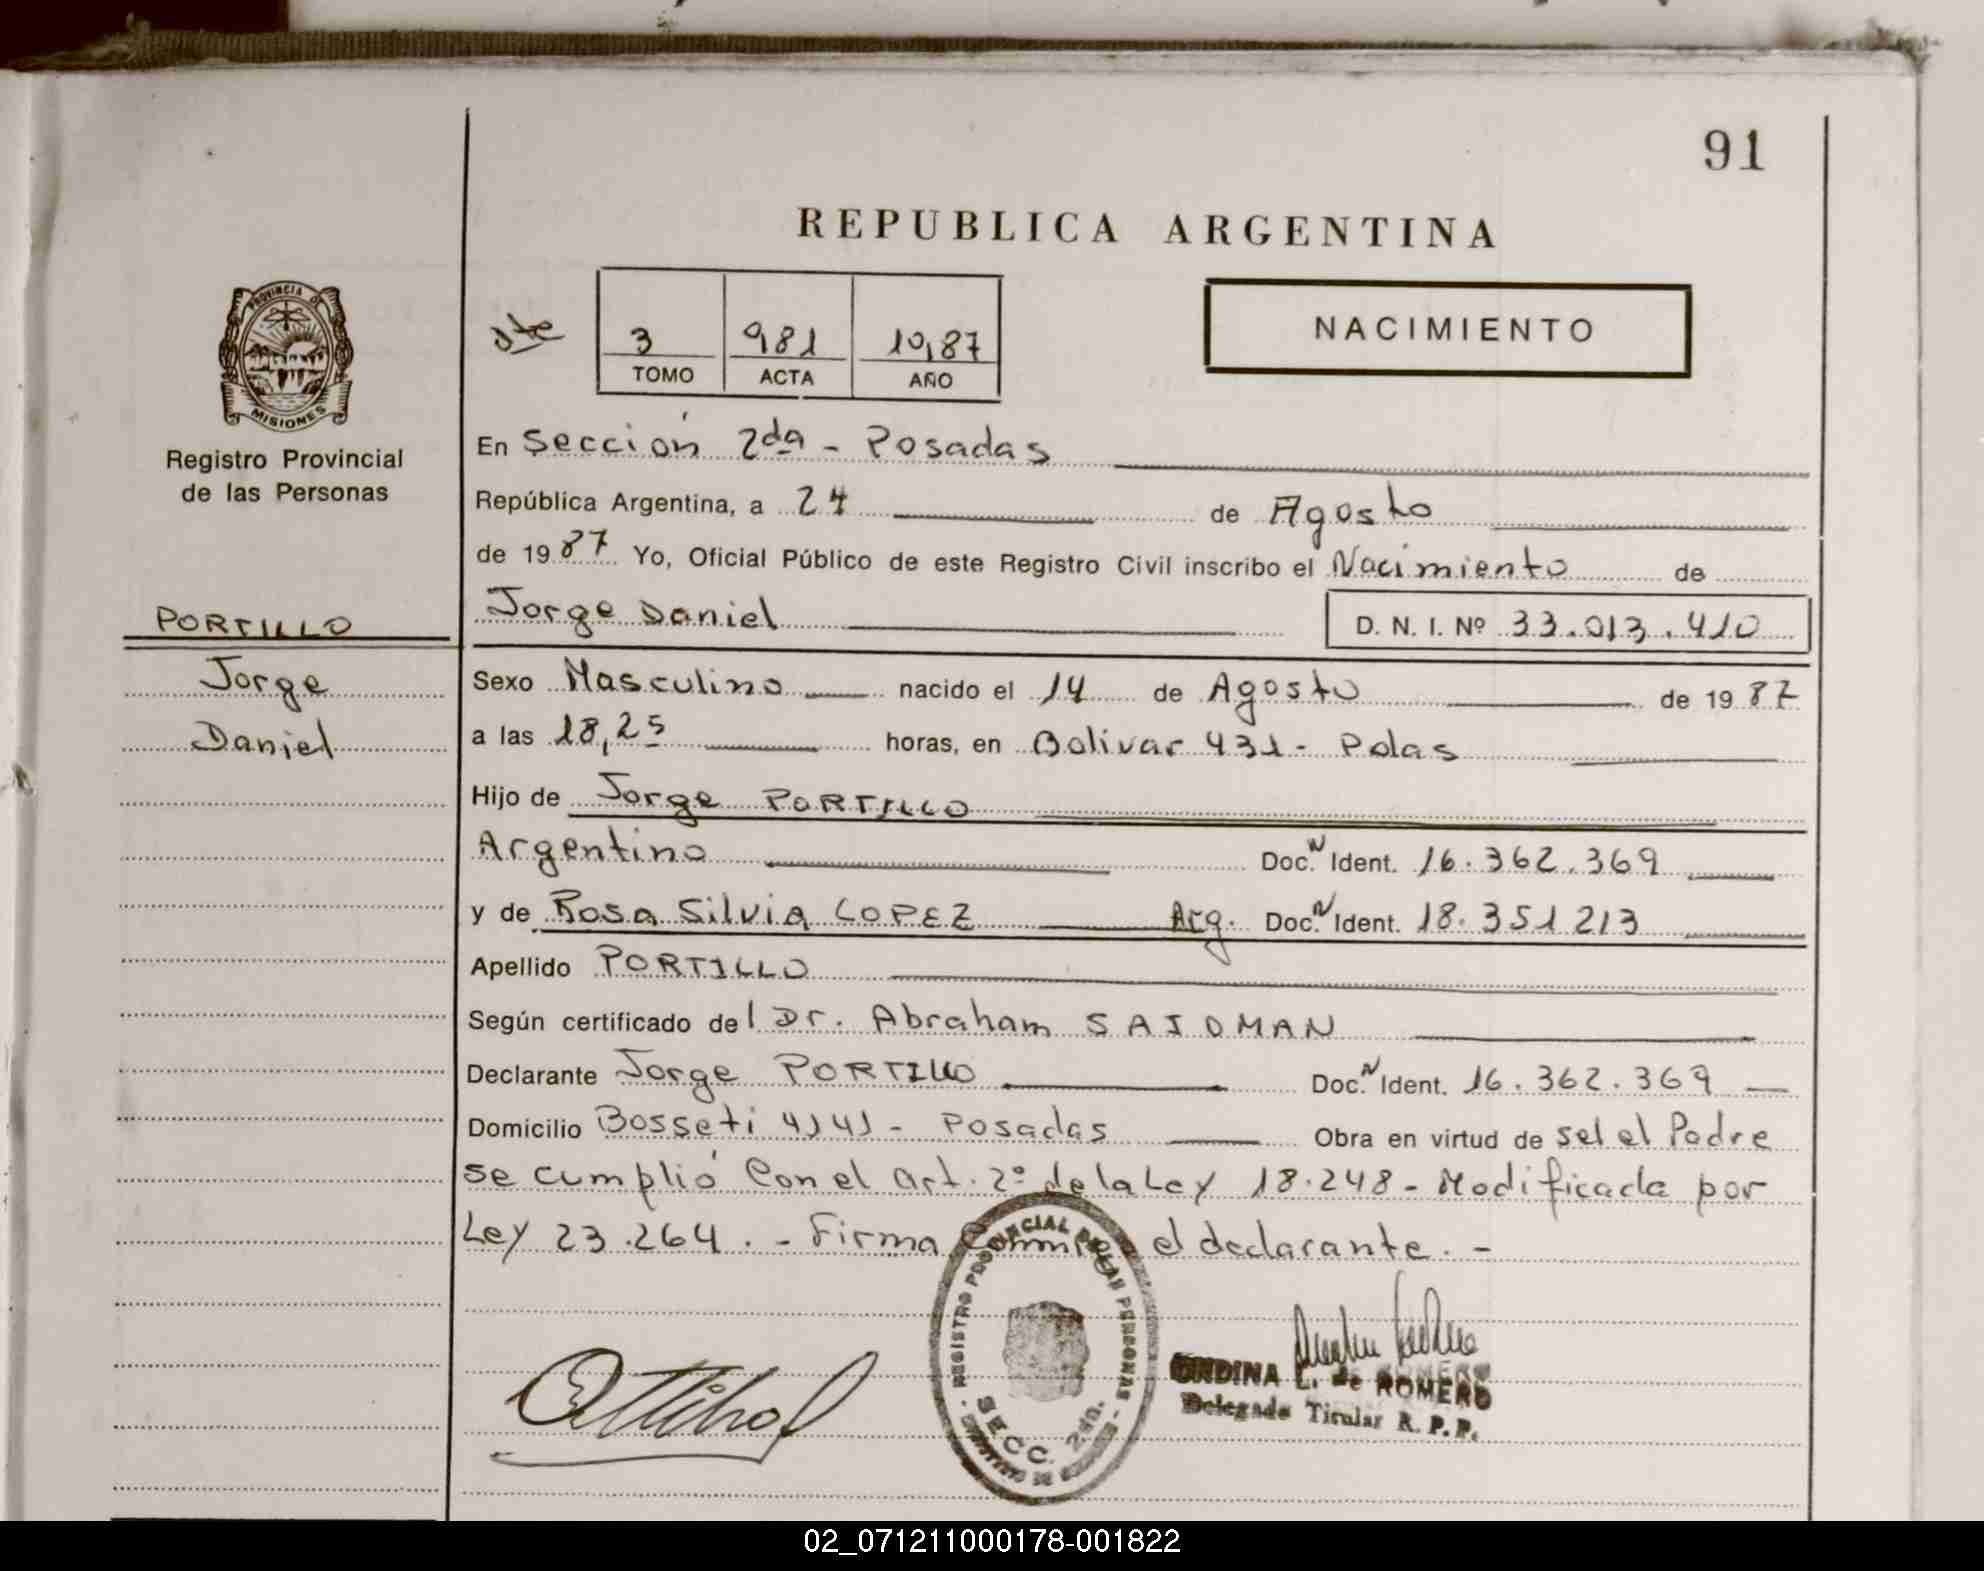 91
REPUBLICA ARGENTINA
PROVINCIA DE
MISIONES
Registro Provincial
de las Personas
3 981 10,87
TOMO ACTA AÑO
NACIMIENTO
En Sección 2da - Posadas
República Argentina, a 24 de Agosto
de 1987 Yo, Oficial Público de este Registro Civil inscribo el Nacimiento de
Jorge Daniel D. N. I. Nº 33.013.410
PORTILLO
Jorge
Daniel
Sexo Masculino nacido el 14 de Agosto de 1987
a las 18,25 horas, en Bolivar 431 - Pdas
Hijo de Jorge PORTILLO
Argentino Doc. N Ident. 16.362.369
y de Rosa Silvia LOPEZ Arg. Doc. N Ident. 18.351 213
Apellido PORTILLO
Según certificado del Dr. Abraham SAIDMAN
Declarante Jorge PORTILLO Doc. N Ident. 16.362.369
Domicilio Bosseti 4141 - Posadas Obra en virtud de sel el Padre
se cumplió Con el art. 2º de la Ley 18.248 - Modificada por
Ley 23.264. - Firma Conmigo el declarante. -
REGISTRO PROVINCIAL DE LAS PERSONAS
SECC. 2da.
ONDINA L. de ROMERO
Delegada Titular R. P. P.
02_071211000178-001822